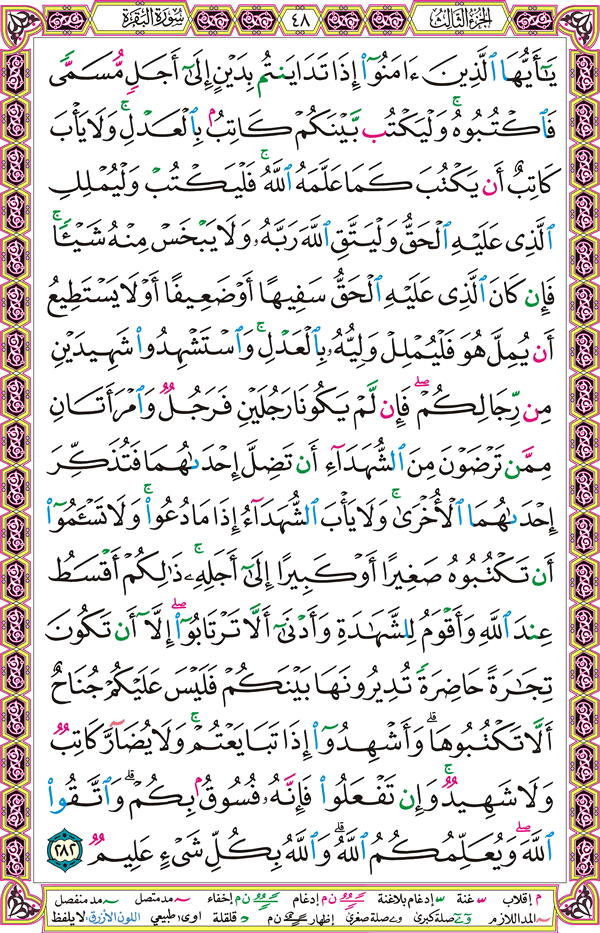 الجزء الثالث
٤٨
سورة البقرة
يَٰٓأَيُّهَا ٱلَّذِينَ ءَامَنُوٓا۟ إِذَا تَدَايَنتُم بِدَيْنٍ إِلَىٰٓ أَجَلٍ مُّسَمًّى
فَٱكْتُبُوهُ ۚ وَلْيَكْتُب بَّيْنَكُمْ كَاتِبٌۢ بِٱلْعَدْلِ ۚ وَلَا يَأْبَ
كَاتِبٌ أَن يَكْتُبَ كَمَا عَلَّمَهُ ٱللَّهُ ۚ فَلْيَكْتُبْ وَلْيُمْلِلِ
ٱلَّذِى عَلَيْهِ ٱلْحَقُّ وَلْيَتَّقِ ٱللَّهَ رَبَّهُۥ وَلَا يَبْخَسْ مِنْهُ شَيْـًٔا ۚ
فَإِن كَانَ ٱلَّذِى عَلَيْهِ ٱلْحَقُّ سَفِيهًا أَوْ ضَعِيفًا أَوْ لَا يَسْتَطِيعُ
أَن يُمِلَّ هُوَ فَلْيُمْلِلْ وَلِيُّهُۥ بِٱلْعَدْلِ ۚ وَٱسْتَشْهِدُوا۟ شَهِيدَيْنِ
مِن رِّجَالِكُمْ ۖ فَإِن لَّمْ يَكُونَا رَجُلَيْنِ فَرَجُلٌ وَٱمْرَأَتَانِ
مِمَّن تَرْضَوْنَ مِنَ ٱلشُّهَدَآءِ أَن تَضِلَّ إِحْدَىٰهُمَا فَتُذَكِّرَ
إِحْدَىٰهُمَا ٱلْأُخْرَىٰ ۚ وَلَا يَأْبَ ٱلشُّهَدَآءُ إِذَا مَا دُعُوا۟ ۚ وَلَا تَسْـَٔمُوٓا۟
أَن تَكْتُبُوهُ صَغِيرًا أَوْ كَبِيرًا إِلَىٰٓ أَجَلِهِۦ ۚ ذَٰلِكُمْ أَقْسَطُ
عِندَ ٱللَّهِ وَأَقْوَمُ لِلشَّهَٰدَةِ وَأَدْنَىٰٓ أَلَّا تَرْتَابُوٓا۟ ۖ إِلَّآ أَن تَكُونَ
تِجَٰرَةً حَاضِرَةً تُدِيرُونَهَا بَيْنَكُمْ فَلَيْسَ عَلَيْكُمْ جُنَاحٌ
أَلَّا تَكْتُبُوهَا ۗ وَأَشْهِدُوٓا۟ إِذَا تَبَايَعْتُمْ ۚ وَلَا يُضَآرَّ كَاتِبٌ
وَلَا شَهِيدٌ ۚ وَإِن تَفْعَلُوا۟ فَإِنَّهُۥ فُسُوقٌۢ بِكُمْ ۗ وَٱتَّقُوا۟
ٱللَّهَ ۖ وَيُعَلِّمُكُمُ ٱللَّهُ ۗ وَٱللَّهُ بِكُلِّ شَىْءٍ عَلِيمٌ ٢٨٢
م إقلاب س غنة إدغام بلاغنة ن م إدغام ن م إخفاء مد متصل مد منفصل
المد اللازم صلة كبرى صلة صغرى إظهار ن م قلقلة اوى طبيعي اللون الأزرق لا يلفظ